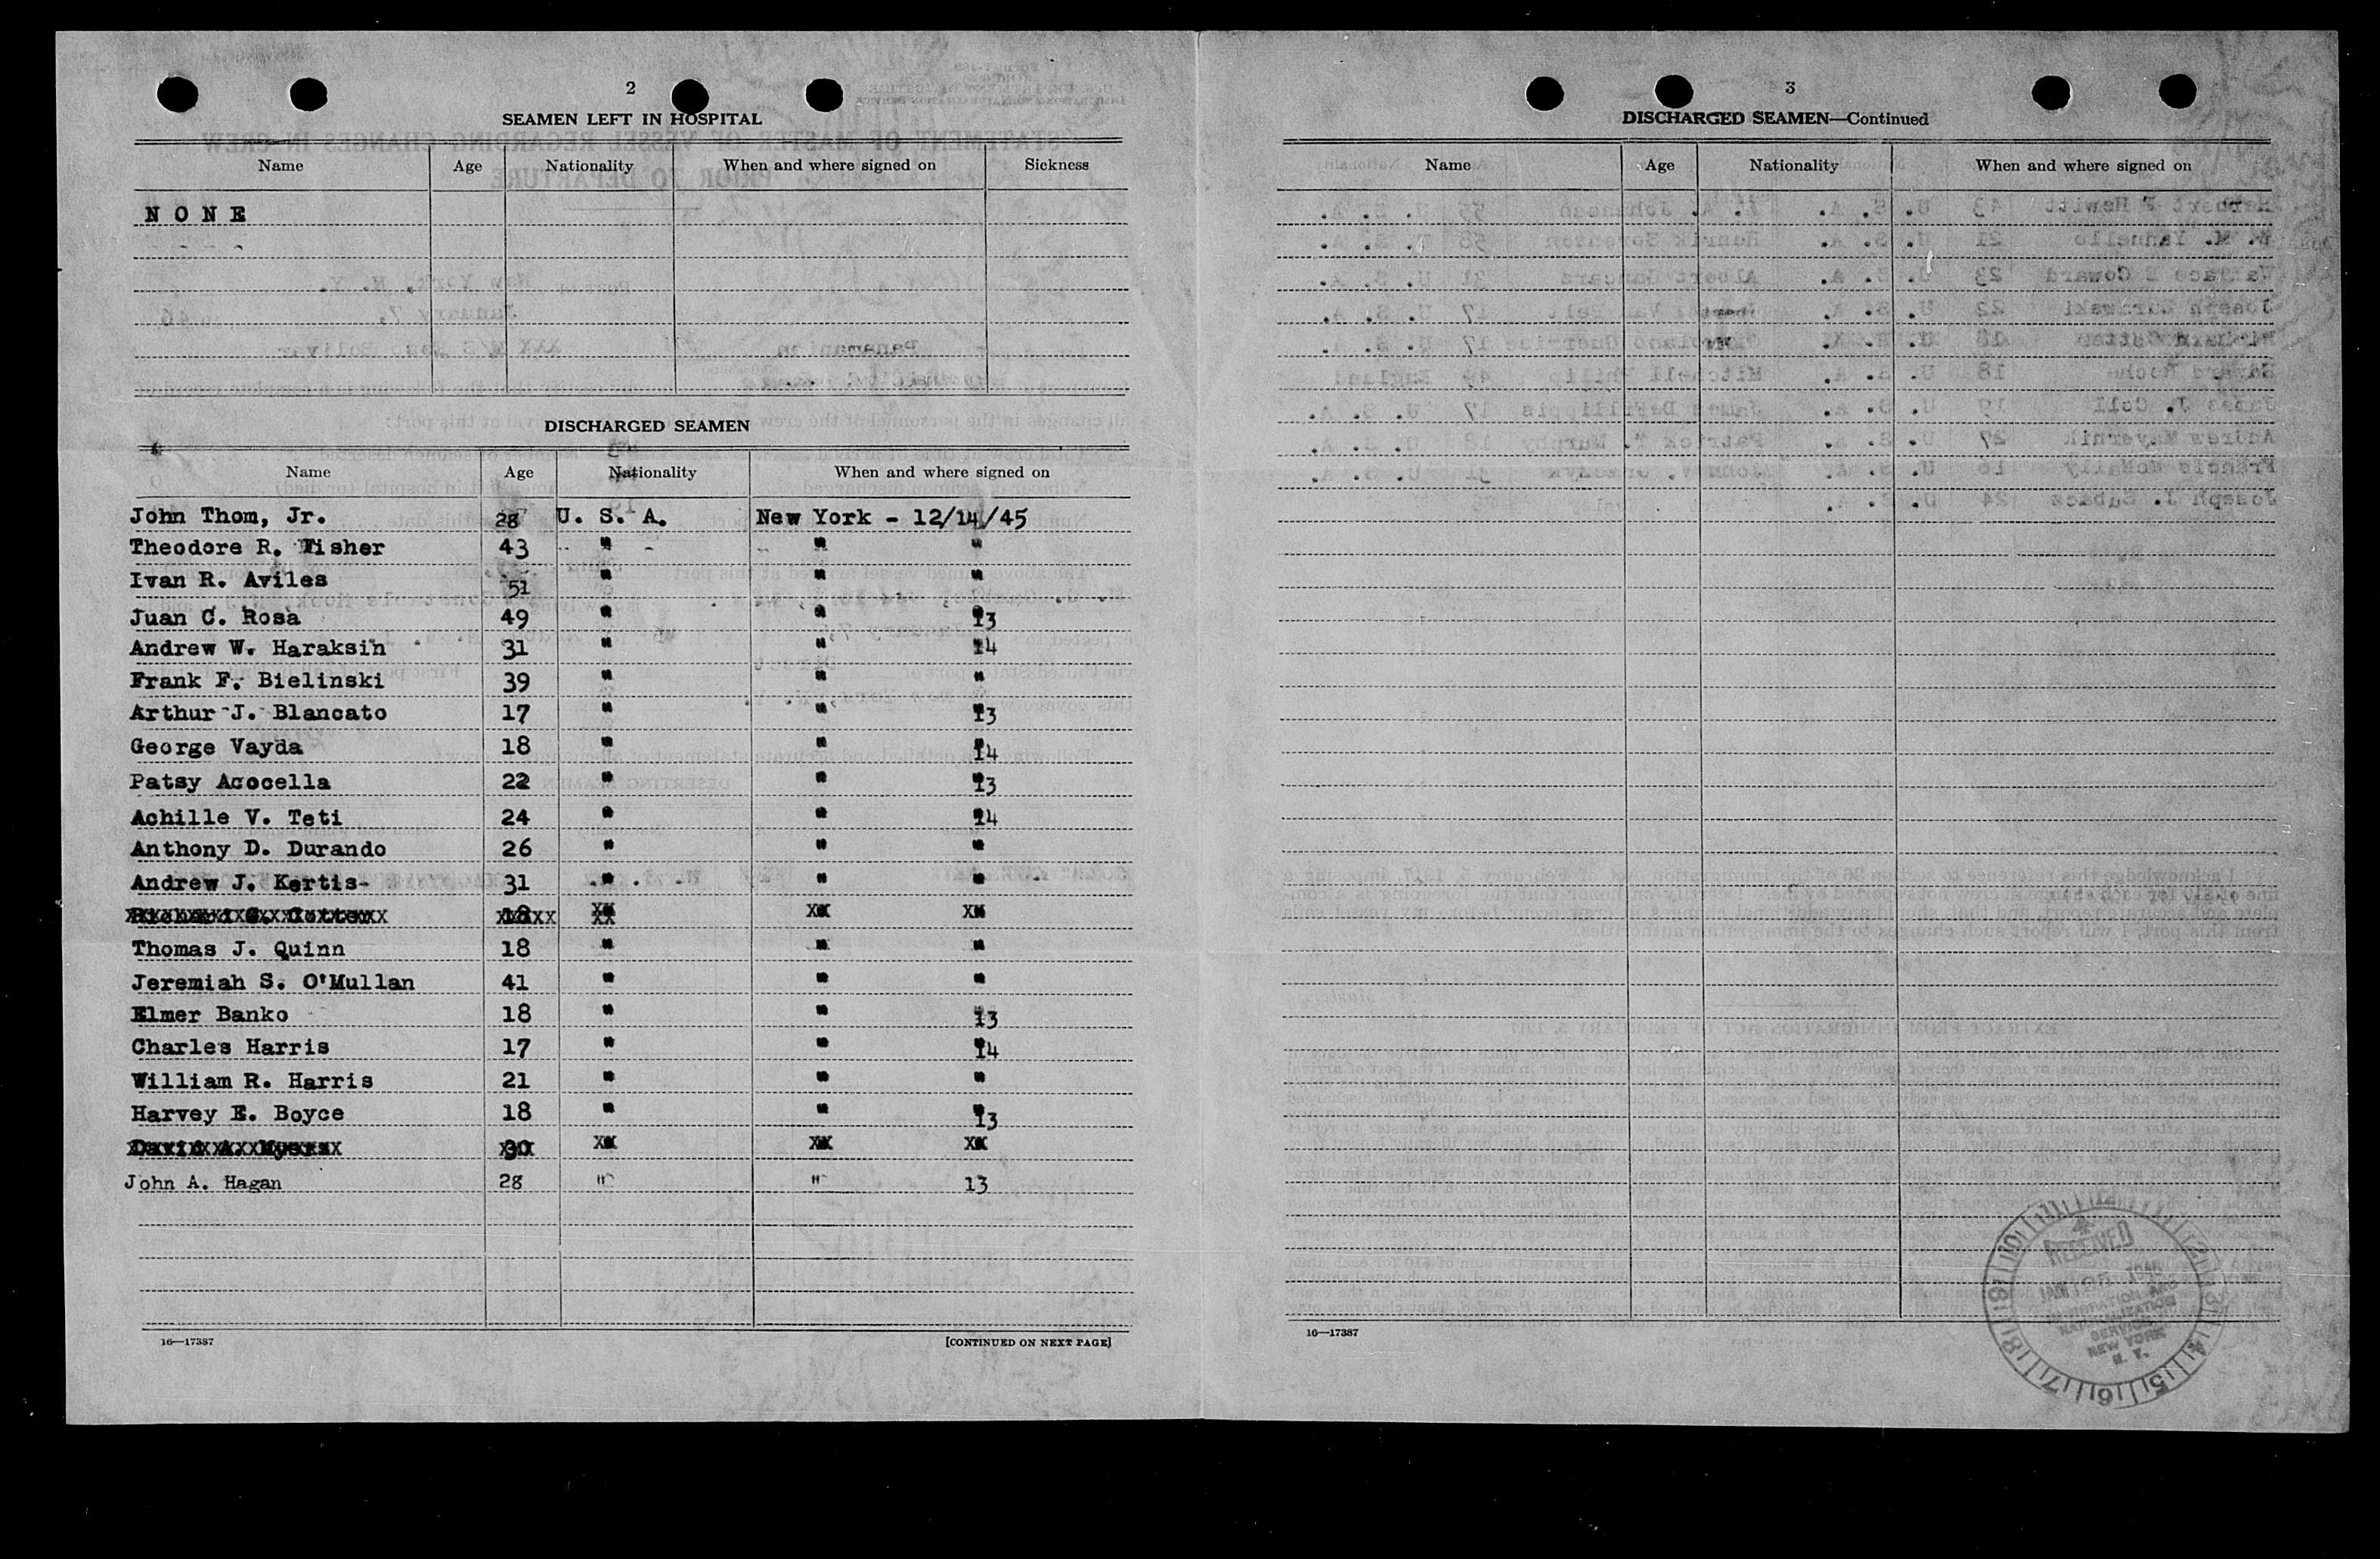 2
SEAMEN LEFT IN HOSPITAL
Name Age Nationality When and where signed on Sickness
NONE
DISCHARGED SEAMEN
Name Age Nationality When and where signed on
John Thom, Jr. 28 U. S. A. New York - 12/14/45
Theodore R. Fisher 43 " " "
Ivan R. Aviles 51 " " "
Juan C. Rosa 49 " " 13
Andrew W. Haraksin 31 " " 14
Frank F. Bielinski 39 " " "
Arthur J. Blancato 17 " " 13
George Vayda 18 " " 14
Patsy Acocella 22 " " 13
Achille V. Teti 24 " " 14
Anthony D. Durando 26 " " "
Andrew J. Kertis 31 " " "
Thomas J. Quinn 18 " " "
Jeremiah S. O'Mullan 41 " " "
Elmer Banko 18 " " 13
Charles Harris 17 " " 14
William R. Harris 21 " " "
Harvey E. Boyce 18 " " 13
John A. Hagan 28 " " 13
16—17387 [CONTINUED ON NEXT PAGE]
3
DISCHARGED SEAMEN—Continued
Name Age Nationality When and where signed on
16—17387
RECEIVED
IMMIGRATION AND
NATURALIZATION
SERVICE
NEW YORK
N. Y.